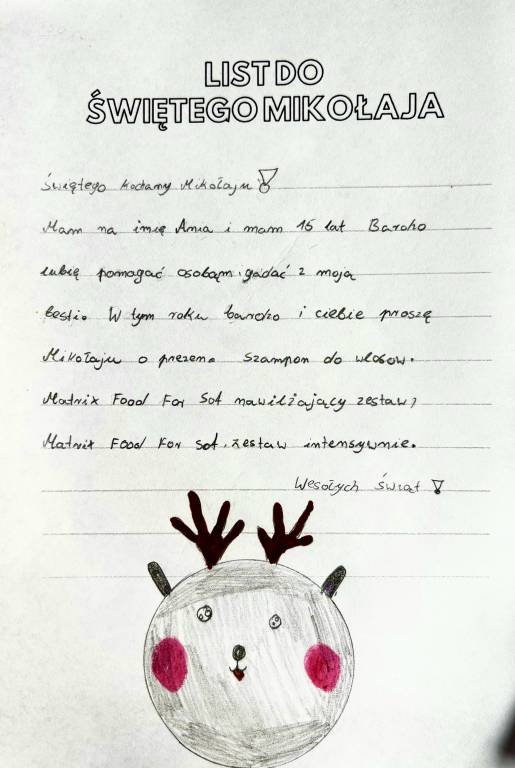 LIST DO
ŚWIĘTEGO MIKOŁAJA
Świętego kochamy Mikołaju!
Mam na imię Ania i mam 16 lat Bardzo
lubię pomagać osobąm i gadać z moją
besti. W tym roku bardzo i ciebie proszę
Mikołaju o prezen. szampon do włosow.
Matrix Food For Sof nawilżający zestaw,
Matrix Food For Sof. zestaw intensywnie.
Wesołych świąt!